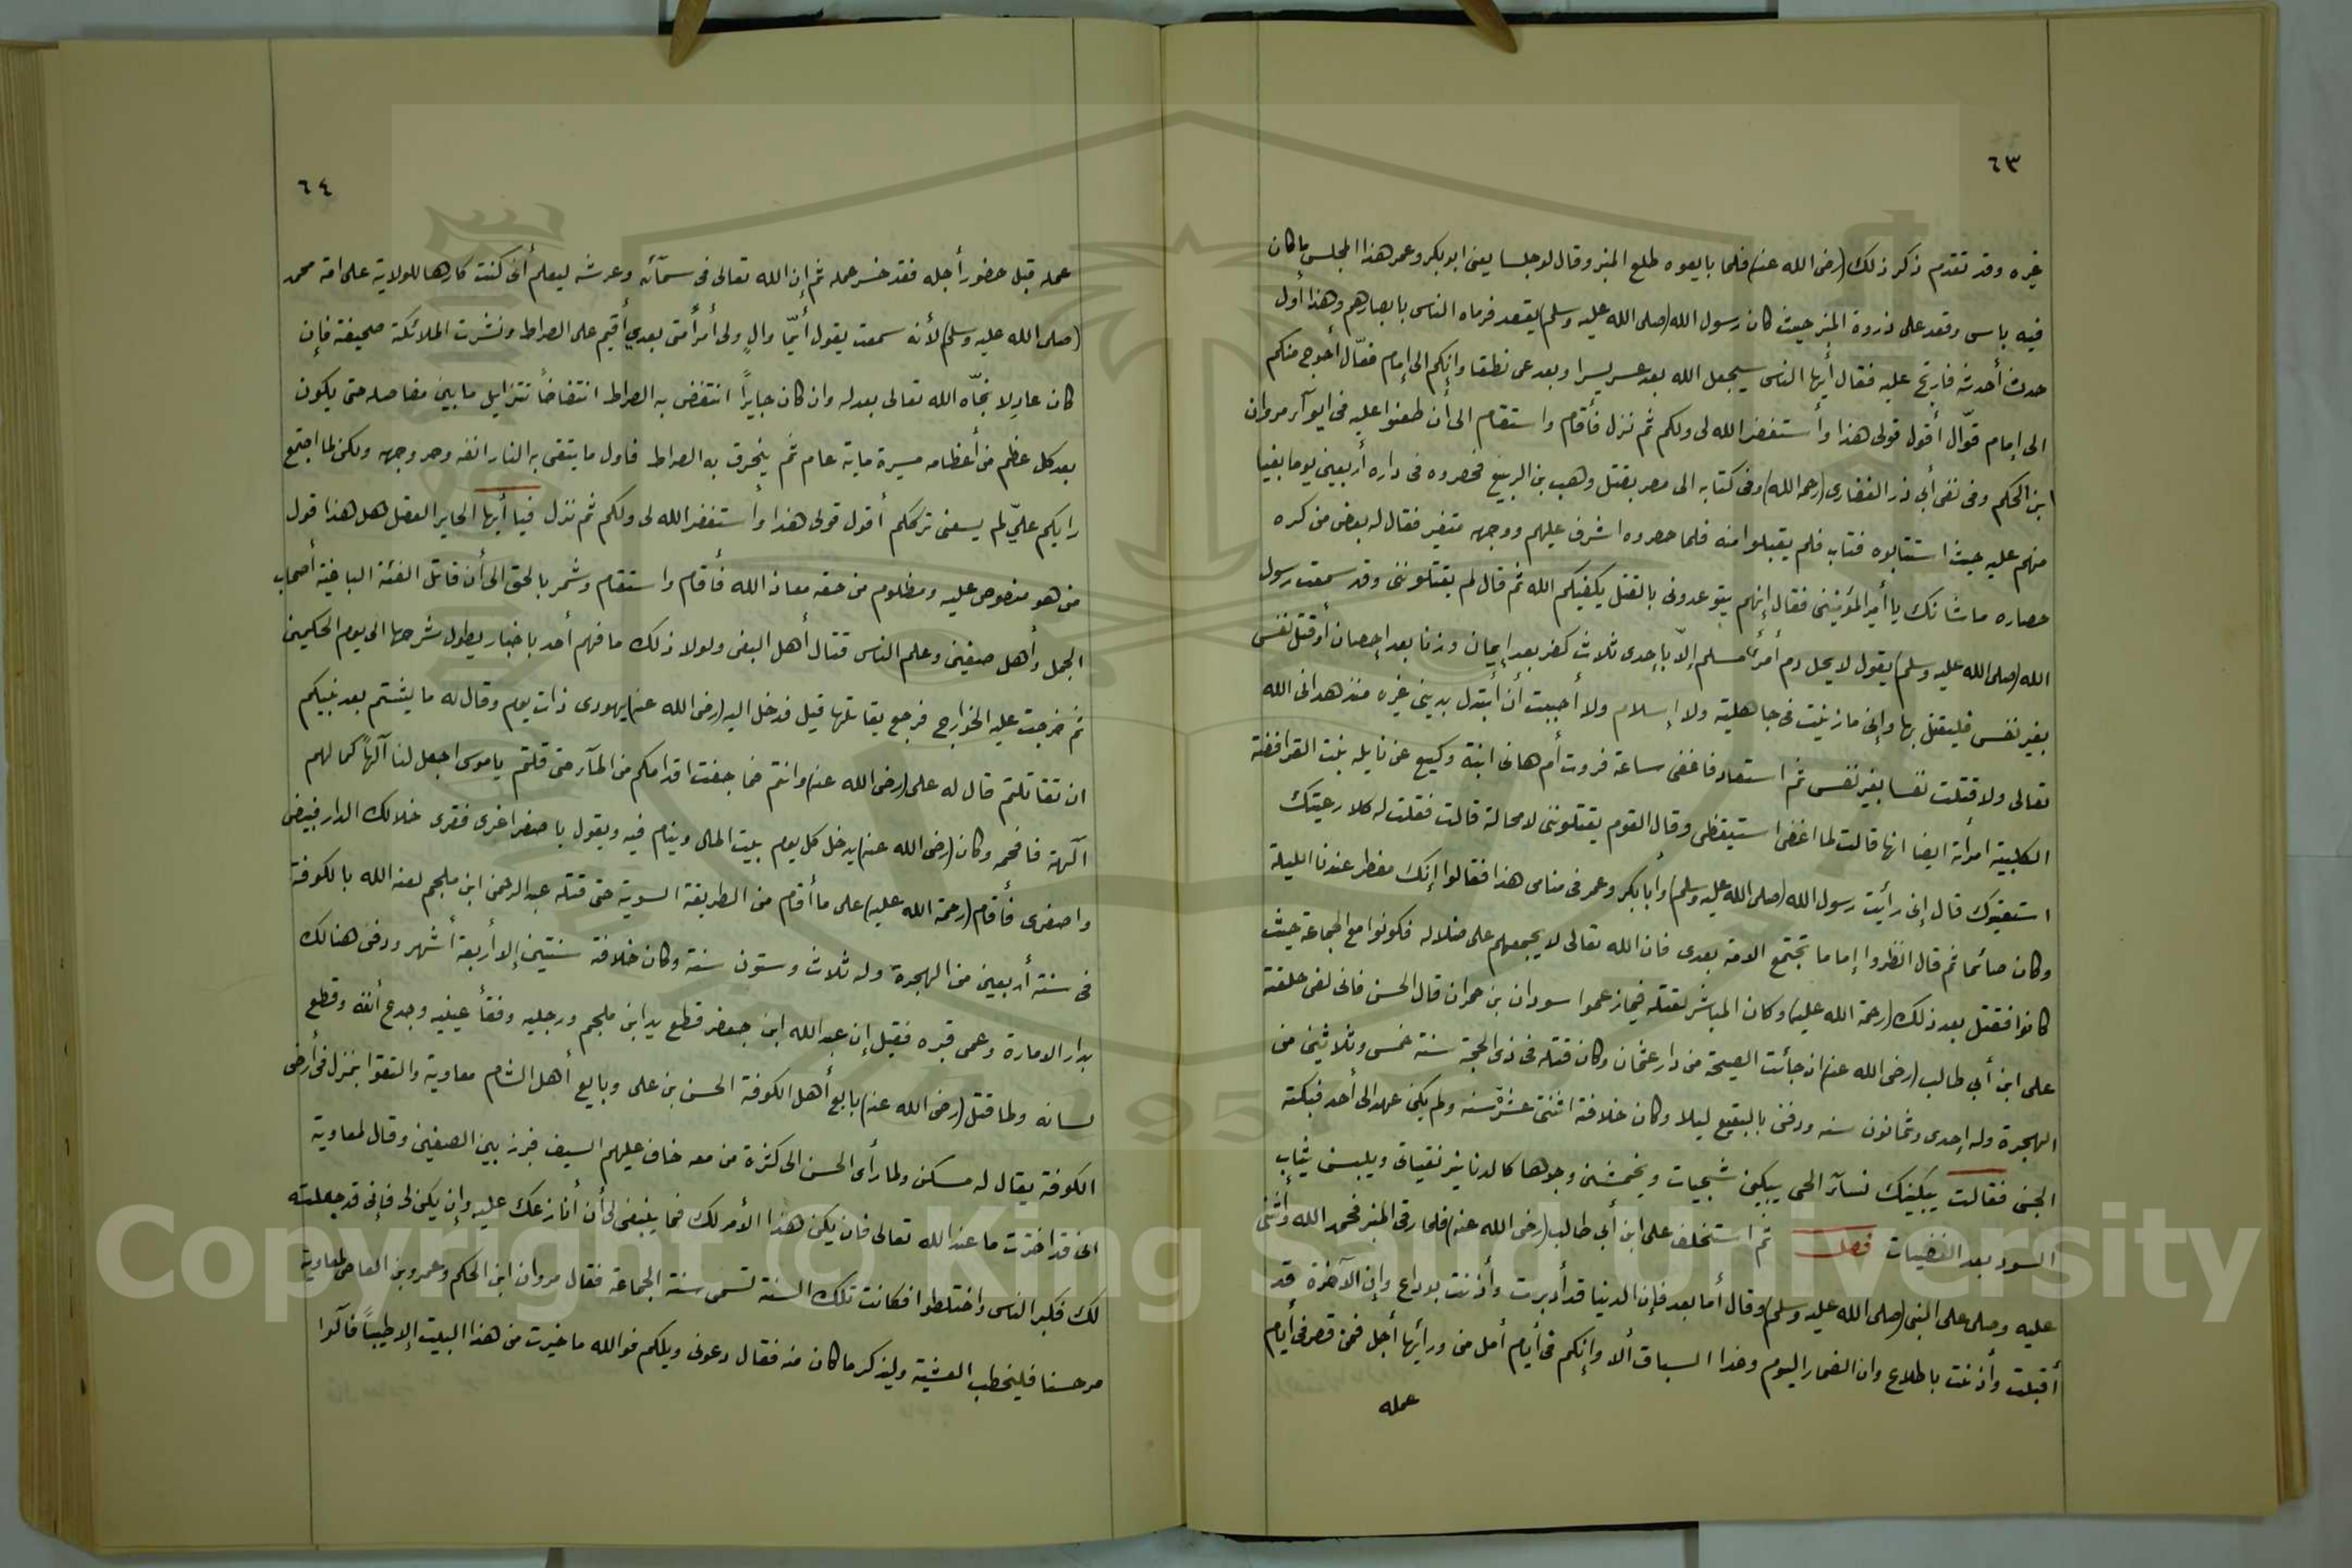 ٦٣
غيره وقد تقدم ذكر ذلك (رضى الله عنه) فلما بايعوه طلع المنبر وقال لو جلسا يعنى ابو بكر وعمر هذا المجلس ما كان
فيه باس وقعد على ذروة المنبر حيث كان رسول الله (صلى الله عليه وسلم) يقعد فرماه الناس بابصارهم وهذا أول
حدث أحدثه فارتج عليه فقال أيها الناس سيجعل الله بعد عسر يسرا وبعد عى نطقا وإنكم الى إمام فعّال أحوج منكم
الى إمام قوّال أقول قولى هذا وأستغفر الله لى ولكم ثم نزل فأقام واستقام الى أن طعنوا عليه فى ايوآء مروان
ابن الحكم وفى نفى أبي ذر الغفارى (رحمه الله) وفى كتابه الى مصر بقتل وهب بن الربيع فحصروه فى داره أربعين يوما بغيا
منهم عليه حيث استتابوه فتاب فلم يقبلوا منه فلما حصروه اشرف عليهم ووجهه متغير فقال له بعض من كره
حصاره ما شانك يا أمير المؤمنين فقال إنهم يتوعدونى بالقتل يكفيكهم الله ثم قال لم يقتلوننى وقد سمعت رسول
الله (صلى الله عليه وسلم) يقول لا يحل دم أمرأ مسلم إلاّ بإحدى ثلاث كفر بعد إيمان وزنا بعد إحصان أو قتل نفس
بغير نفس فليقتل بها وإنى ما زنيت فى جاهلية ولا إسلام ولا أحببت أن أبتدل بدينى غيره منذ هدانى الله
تعالى ولا قتلت نفسا بغير نفس ثم استعاد فاغفى ساعة فروت أم هانى ابنة وكيع عن نايله بنت القرافضة
الكلبية امرأته ايضا انها قالت لما اغفى استيقظ وقال القوم يقتلوننى لا محالة قالت فقلت له كلا رعيتك
استعتبوك قال إنى رأيت رسول الله (صلى الله عليه وسلم) وأبا بكر وعمر فى منامى هذا فقالوا إنك مفطر عندنا الليلة
وكان صائما ثم قال انظروا إماما تجتمع الامة بعدى فان الله تعالى لا يجمعهم على ضلاله فكونوا مع الجماعة حيث
كانوا فقتل بعد ذلك (رحمة الله عليه) وكان المباشر لقتله فيما زعموا سودان بن حمران قال الحسن فانى لفى حلقة
على ابن أبي طالب (رضى الله عنه) اذ جائت الصيحة من دار عثمان وكان قتله فى ذى الحجة سنة خمس وثلاثين من
الهجرة وله إحدى وثمانون سنه ودفن بالبقيع ليلا وكان خلافة اثنتى عشرّ سنه ولم يكن عهد الى أحد فبكته
الجن فقالت يبكينك نسآء الحى يبكين شجيات ويخمشن وجوها كالدنانير نقيات ويلبسن ثياب
السود بعد القصبيات فصل ثم استخلف على ابن أبي طالب (رضى الله عنه) فلما رقى المنبر فحمد الله وأثنى
عليه وصلى على النبى (صلى الله عليه وسلم) وقال أما بعد فإن الدنيا قد أدبرت وأذنت بوداع وإن الآخرة قد
أقبلت وأذنت باطلاع وان الضمار اليوم وغدا السباق ألا وإنكم فى أيام أمل من ورأيها أجل فمن قصر فى أيام
عمله
٦٤
عمله قبل حضور أجله فقد خسر عمله ثم إن الله تعالى فى سمآئه وعرشه ليعلم أنى كنت كارها للولاية على امة محمد
(صلى الله عليه وسلم) لأنه سمعت يقول أيّما والٍ ولى أمر أمتى بعدي أقيم على الصراط ونشرت الملائكة صحيفة فإن
كان عادلا نجّاه الله تعالى بعدله وان كان جايرًا انتفض به الصراط انتفاضاً تتزايل ما بين مفاصله حتى يكون
بعد كل عظم من أعظامه مسيرة ماية عام ثم ينخرق به الصراط فاول ما يتقى به النار انفه وحر وجهه ولكن لما اجتمع
رايكم عليّ لم يسعنى ترككم أقول قولى هذا وأستغفر الله لى ولكم ثم نزل فيا أيها الحاير العقل هل هذا قول
من هو منصوص عليه ومظلوم من حقه معاذ الله فأقام واستقام وشمر بالحق الى أن قاتل الفئة الباغية أصحاب
الجمل وأهل صفين وعلم الناس قتال أهل البغى ولولا ذلك ما فهم أحد باخبار يطول شرحها الى يوم الحكمين
ثم خرجت عليه الخوارج فرجع يقاتلها قيل فدخل اليه (رضى الله عنه) يهودى ذات يوم وقال له ما لبثتم بعد نبيكم
ان تقاتلتم قال له على (رضى الله عنه) وانتم فما جفت اقدامكم من المآء حتى قلتم ياموسى اجعل لنا آلهاً كما لهم
آلهة فافحمه وكان (رضى الله عنه) يدخل كل يوم بيت المال وينام فيه ويقول يا صفرا غرى فقرى خلالك الدار فبيضى
واصفرى فأقام (رحمة الله عليه) على ما أقام من الطريقة السوية حتى قتله عبد الرحمن ابن ملجم لعنه الله بالكوفة
فى سنة أربعين من الهجرة وله ثلاث وستون سنة وكان خلافة سنتين إلا أربعة أشهر ودفن هنالك
بدار الامارة وعمى قبره فقيل إن عبد الله ابن جعفر قطع يد ابن ملجم ورجليه وفقأ عينيه وجدع أنفه وقطع
لسانه ولما قتل (رضى الله عنه) بايع أهل الكوفة الحسن بن على وبايع أهل الشام معاوية والتقوا بمنزل فى أرض
الكوفة يقال له مسكن ولما رأى الحسن الى كثرة من معه خاف عليهم السيف فبرز بين الصفين وقال لمعاوية
انى قد اخترت ما عند الله تعالى فان يكن هذا الأمر لك فما ينبغى لى أن أنازعك عليه وإن يكن لى فإنى قد جعلته
لك فكبر الناس واختلطوا فكانت تلك السنة تسمى سنة الجماعة فقال مروان ابن الحكم وعمرو بن العاص لمعاوية
مر حسنا فليخطب العشية وليذكر ما كان منه فقال دعونى ويلكم فوالله ما خيرت من هذا البيت إلا طيباً فآلوا
Copyright © King Saud University
1957